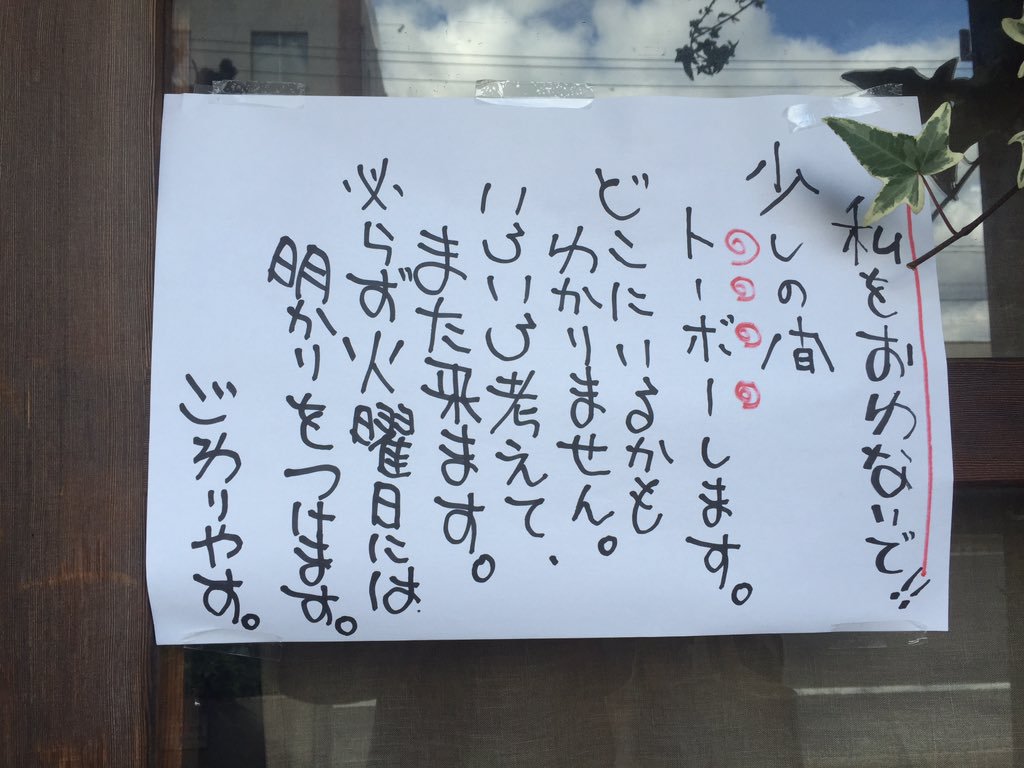 私をおわないで!!
少しの間
トーボーします。
どこにいるかも
わかりません。
いろいろ考えて、
また来ます。
必らず火曜日には
明かりをつけます。
ごわりやす。